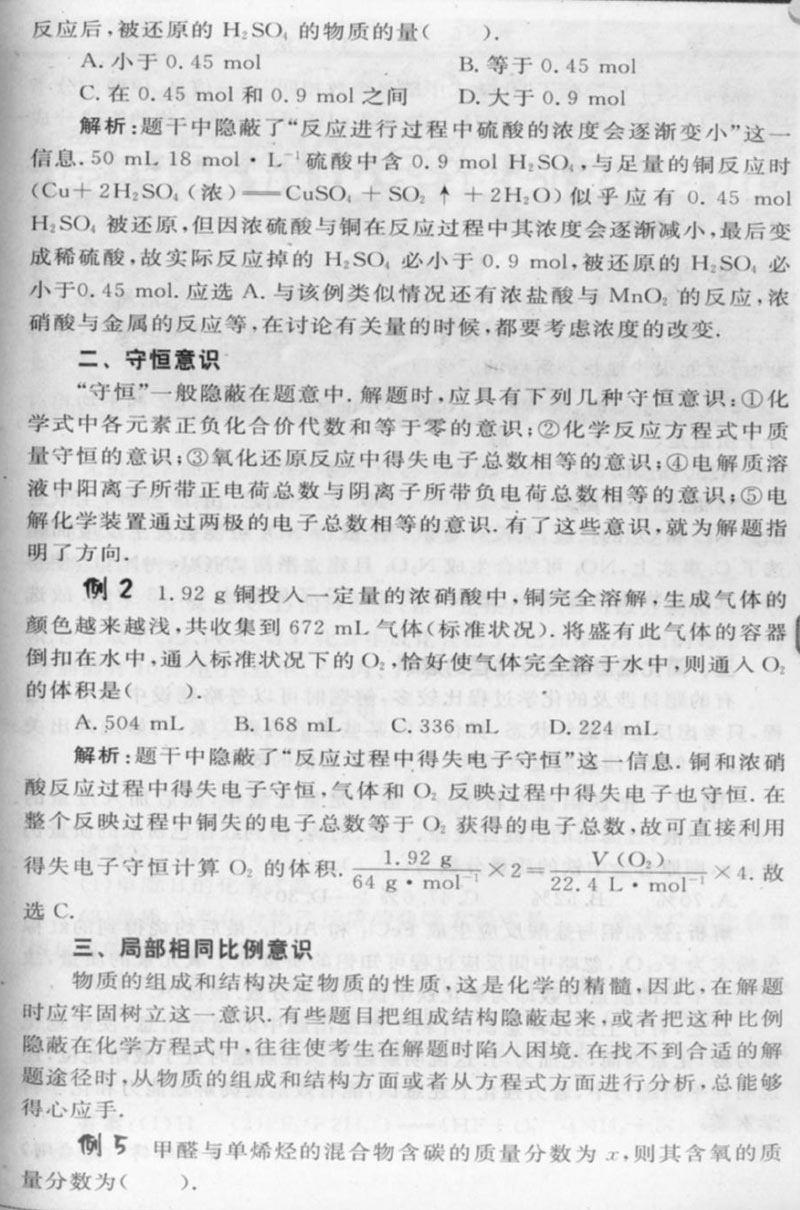 反应后,被还原的 H₂SO₄ 的物质的量(　　).
A. 小于 0.45 mol　　B. 等于 0.45 mol
C. 在 0.45 mol 和 0.9 mol 之间　　D. 大于 0.9 mol
解析:题干中隐蔽了“反应进行过程中硫酸的浓度会逐渐变小”这一
信息. 50 mL 18 mol·L⁻¹硫酸中含 0.9 mol H₂SO₄,与足量的铜反应时
(Cu＋2H₂SO₄(浓)══CuSO₄＋SO₂↑＋2H₂O)似乎应有 0.45 mol
H₂SO₄ 被还原,但因浓硫酸与铜在反应过程中其浓度会逐渐减小,最后变
成稀硫酸,故实际反应掉的 H₂SO₄ 必小于 0.9 mol,被还原的 H₂SO₄ 必
小于0.45 mol. 应选 A. 与该例类似情况还有浓盐酸与 MnO₂ 的反应,浓
硝酸与金属的反应等,在讨论有关量的时候,都要考虑浓度的改变.
二、守恒意识
“守恒”一般隐蔽在题意中. 解题时,应具有下列几种守恒意识:①化
学式中各元素正负化合价代数和等于零的意识;②化学反应方程式中质
量守恒的意识;③氧化还原反应中得失电子总数相等的意识;④电解质溶
液中阳离子所带正电荷总数与阴离子所带负电荷总数相等的意识;⑤电
解化学装置通过两极的电子总数相等的意识. 有了这些意识,就为解题指
明了方向.
例 2　1.92 g 铜投入一定量的浓硝酸中,铜完全溶解,生成气体的
颜色越来越浅,共收集到 672 mL 气体(标准状况). 将盛有此气体的容器
倒扣在水中,通入标准状况下的 O₂,恰好使气体完全溶于水中,则通入 O₂
的体积是(　　).
A. 504 mL　　B. 168 mL　　C. 336 mL　　D. 224 mL
解析:题干中隐蔽了“反应过程中得失电子守恒”这一信息. 铜和浓硝
酸反应过程中得失电子守恒,气体和 O₂ 反映过程中得失电子也守恒. 在
整个反映过程中铜失的电子总数等于 O₂ 获得的电子总数,故可直接利用
得失电子守恒计算 O₂ 的体积. 1.92 g/64 g·mol⁻¹×2＝V(O₂)/22.4 L·mol⁻¹×4. 故
选 C.
三、局部相同比例意识
物质的组成和结构决定物质的性质,这是化学的精髓,因此,在解题
时应牢固树立这一意识. 有些题目把组成结构隐蔽起来,或者把这种比例
隐蔽在化学方程式中,往往使考生在解题时陷入困境. 在找不到合适的解
题途径时,从物质的组成和结构方面或者从方程式方面进行分析,总能够
得心应手.
例 5　甲醛与单烯烃的混合物含碳的质量分数为 x,则其含氧的质
量分数为(　　).